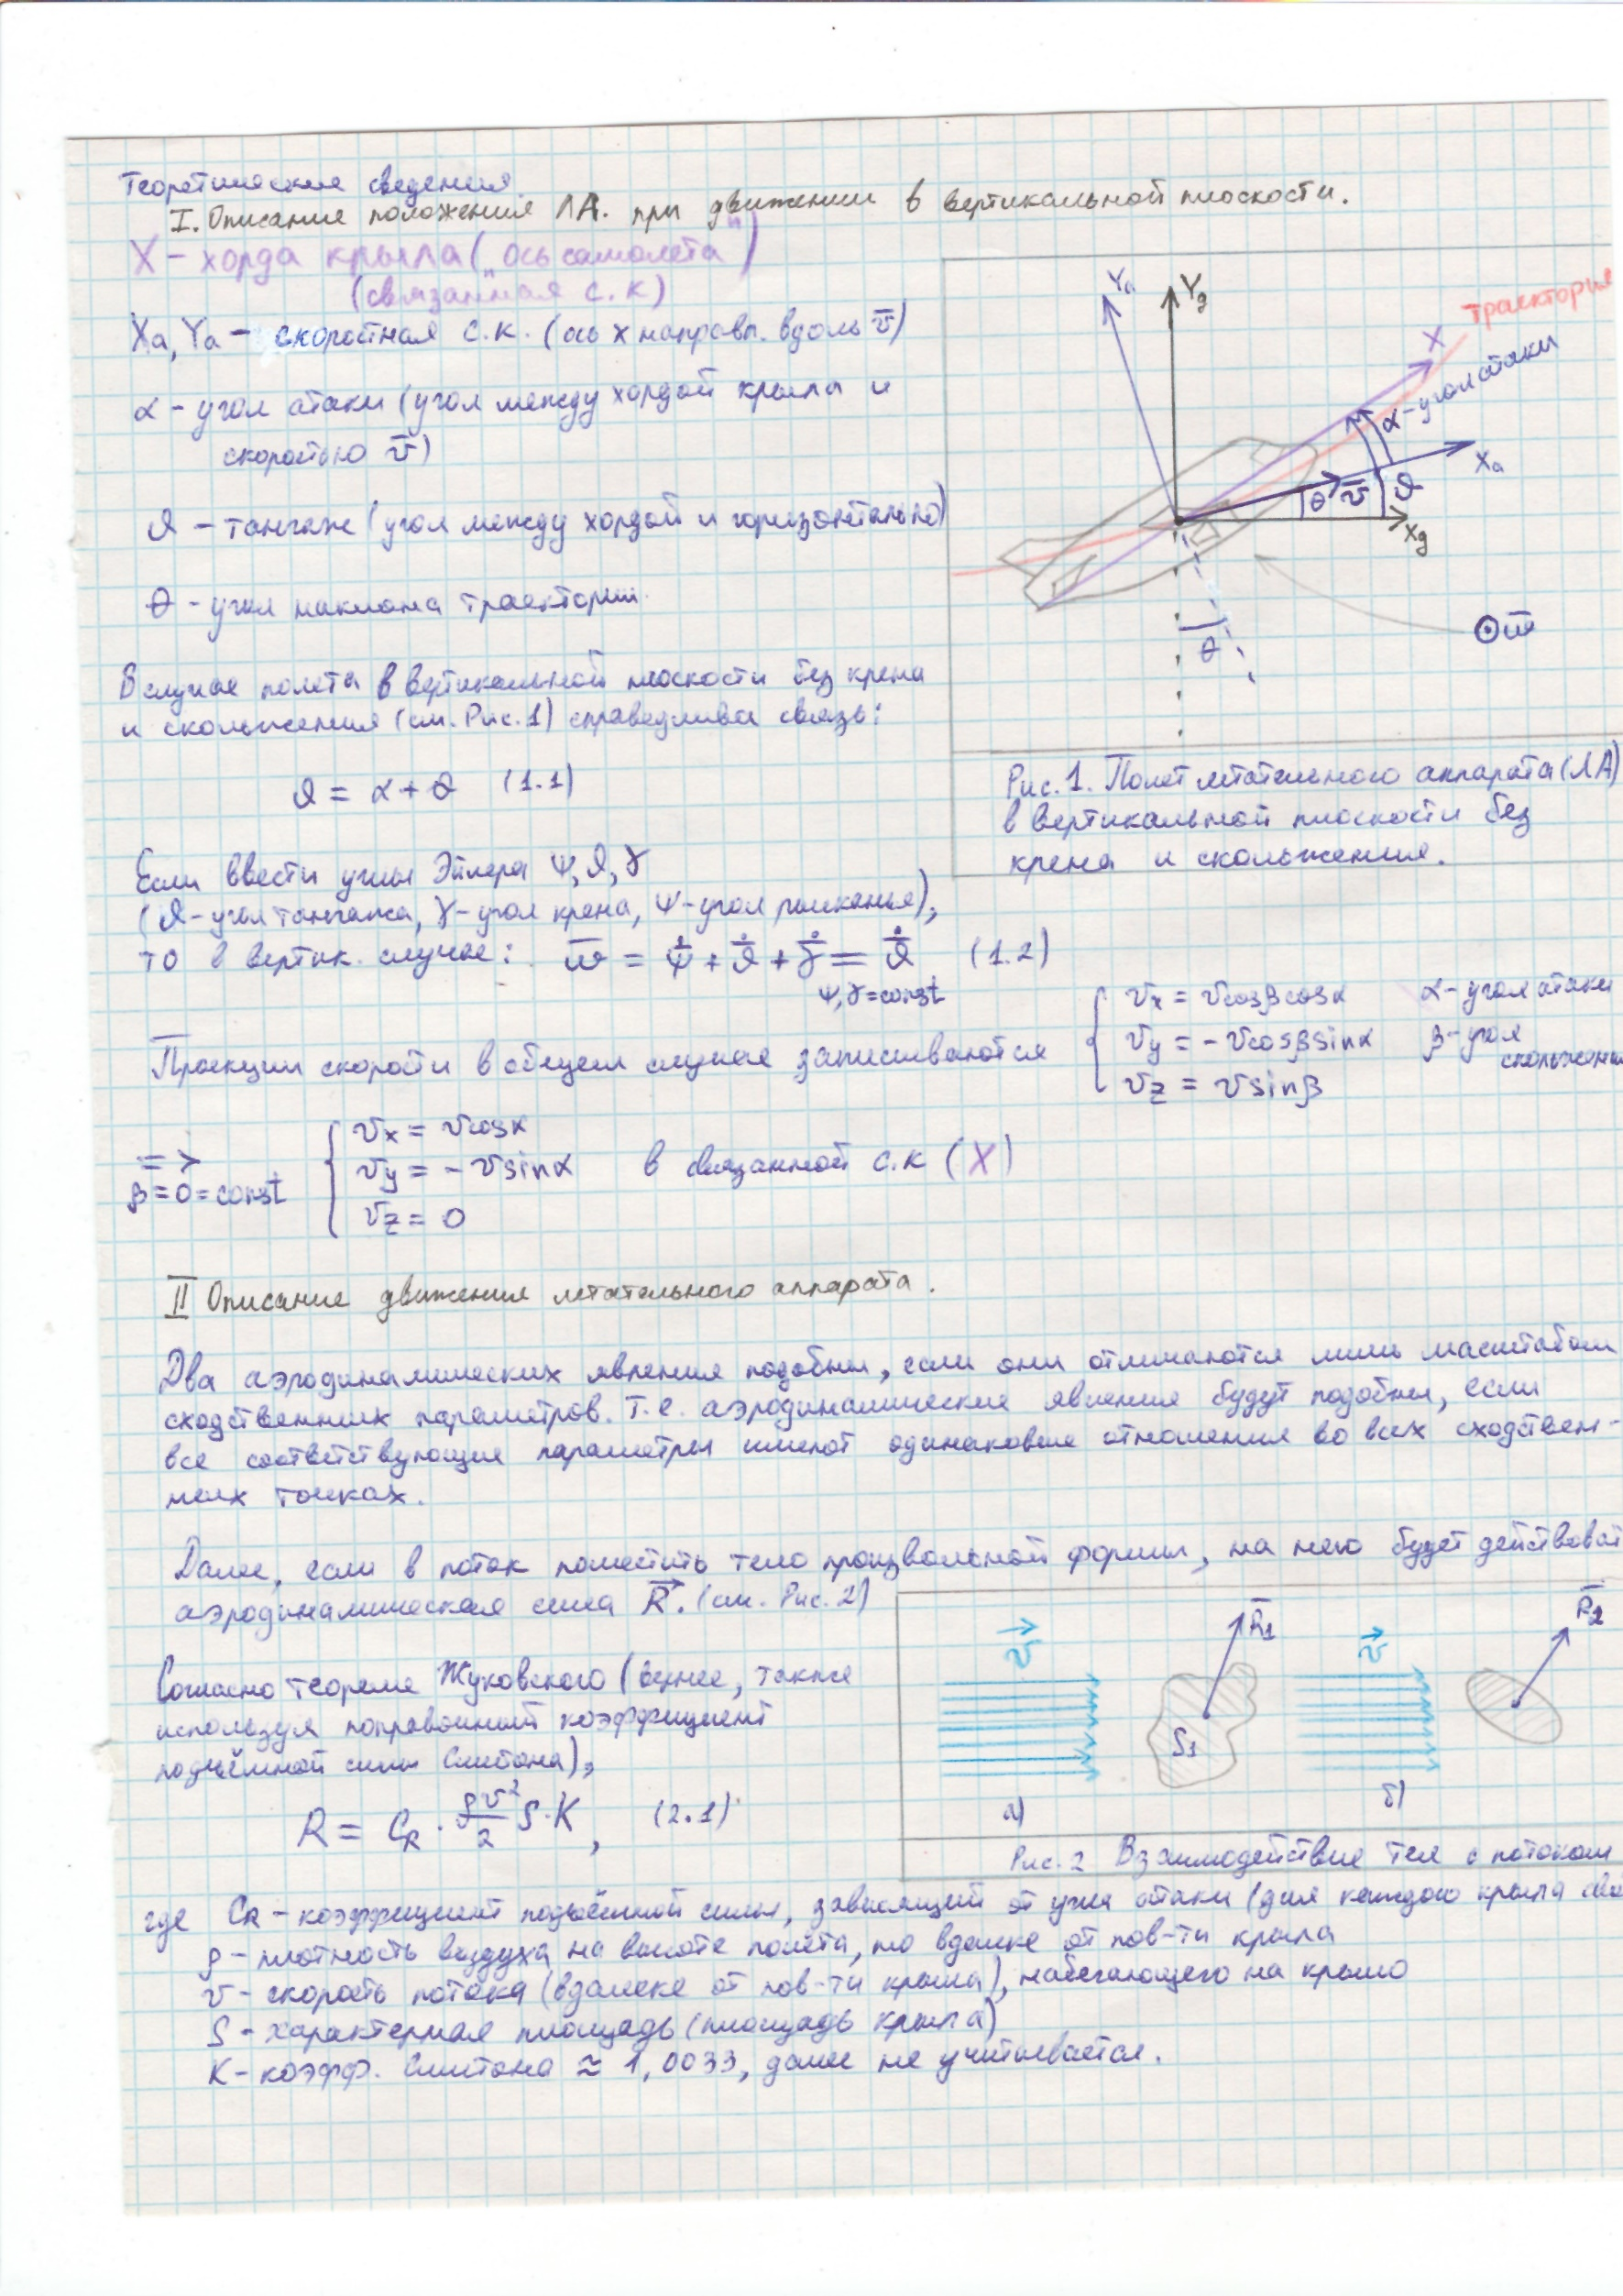 Теоретические сведения.
I. Описание положения ЛА. при движении в вертикальной плоскости.
X – хорда крыла („ось самолета")
(связанная с.к)
Xa, Ya – скоростная с.к. (ось x направл. вдоль v̅)
α – угол атаки (угол между хордой крыла и
скоростью v̅)
ϑ – тангаж (угол между хордой и горизонталью)
θ – угол наклона траектории.
В случае полета в вертикальной плоскости без крена
и скольжения (см. Рис. 1) справедлива связь:
ϑ = α + θ (1.1)
Ya
Yg
траектория
X
α – угол атаки
Xa
θ
v̅
ϑ
Xg
θ
ω̅
Рис. 1. Полет летательного аппарата (ЛА)
в вертикальной плоскости без
крена и скольжения.
Если ввести углы Эйлера ψ, ϑ, γ
(ϑ – угол тангажа, γ – угол крена, ψ – угол рысканья),
то в вертик. случае: ω̅ = ψ̇̅ + ϑ̇̅ + γ̇̅ = ϑ̇̅ (1.2)
ψ, γ = const
Проекции скорости в общем случае записываются
vx = vcosβcosα
vy = -vcosβsinα
vz = vsinβ
α – угол атаки
β – угол
скольжения
=>
β = 0 = const
vx = vcosα
vy = -vsinα
vz = 0
в связанной с.к (X)
II Описание движения летательного аппарата.
Два аэродинамических явления подобны, если они отличаются лишь масштабом
сходственных параметров. Т.е. аэродинамические явления будут подобны, если
все соответствующие параметры имеют одинаковые отношения во всех сходствен-
ных точках.
Далее, если в поток поместить тело произвольной формы, на него будет действоват
аэродинамическая сила R⃗. (см. Рис. 2)
Согласно теореме Жуковского (далее, также
используя поправочный коэффициент
подъёмной силы Смитона),
R = CR · ρv²/2 S·K, (2.1)
v⃗
R̅1
S1
а)
v⃗
R̅2
б)
Рис. 2 Взаимодействие тел с потоком
где CR – коэффициент подъёмной силы, зависящий от угла атаки (для каждого крыла сво
ρ – плотность воздуха на высоте полёта, но вдалеке от пов-ти крыла
v – скорость потока (вдалеке от пов-ти крыла), набегающего на крыло
S – характерная площадь (площадь крыла)
K – коэфф. Смитона ≈ 1,0033, далее не учитывается.